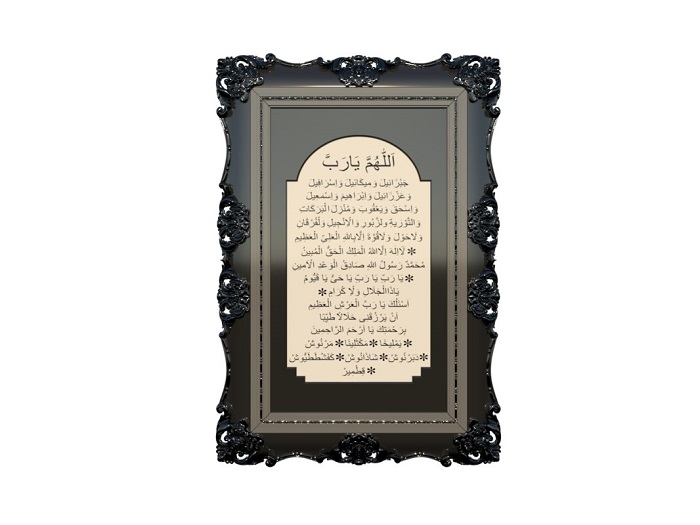 اَللّٰهُمَّ يَارَبَّ
جَبْرَائِيلَ وَمِيكَائِيلَ وَاِسْرَافِيلَ
وَعَزْرَائِيلَ وَاِبْرَاهِيمَ وَاِسْمَعِيلَ
وَاِسْحَقَ وَيَعْقُوبَ وَمُنْزِلَ الْبَرَكَاتِ
وَالتَّوْرَيةِ وَلزَّبُورِ وَالْاَنْجِيلِ وَلْفُرْقَانِ
وَلَاحَوْلَ وَلَاقُوَّةَ اِلَّابِاللهِ الْعَلِىِّ الْعَظِيمِ
لَااِلَهَ اِلَّااللهُ الْمَلِكُ الْحَقُّ الْمُبِينُ ✻
مُحَمَّدٌ رَسُولُ اللهِ صَادِقُ الْوَعْدِ الْاَمِينِ
✻ يَا رَبِّ يَا رَبِّ يَا حَىُّ يَا قَيُّومُ
يَاذَاالْجَلَالِ وَلْاِكْرَامِ ✻
اَسْئَلُكَ يَا رَبَّ الْعَرْشِ الْعَظِيمِ
اَنْ يَرْزُقَنِى حَلَالًا طَيِّبًا
بِرَحْمَتِكَ يَا اَرْحَمَ الرَّاحِمِينَ
✻يَمْلِيخَا ✻مَكْثَلِينَا ✻ مَرْنُوشْ
✻دَبَرْنُوشْ ✻شَاذَنُوشْ ✻كَفَشْطَطَيُّوشْ
✻ قِطْمِيرْ